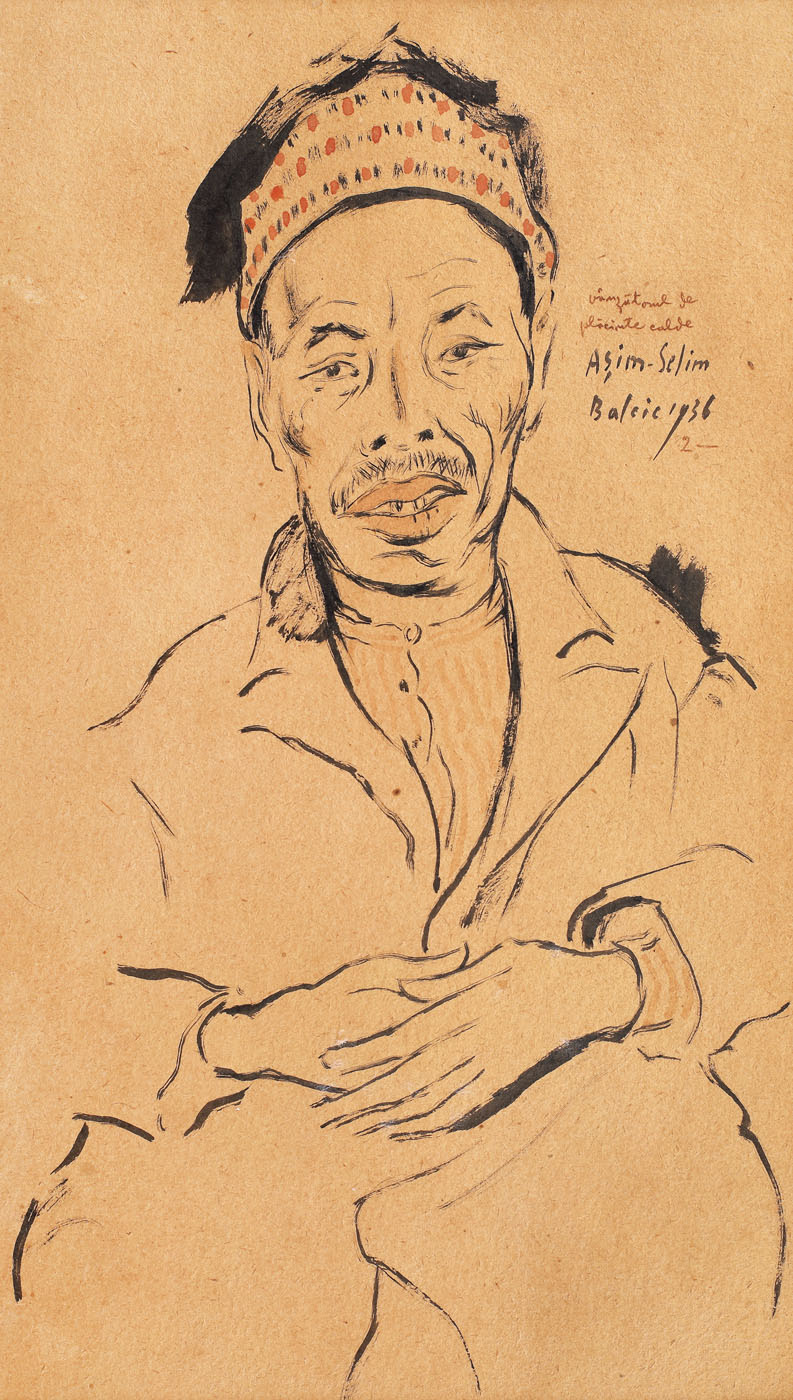 vânzătorul de
plăcinte calde
Așim-Selim
Balcic 1936
2—